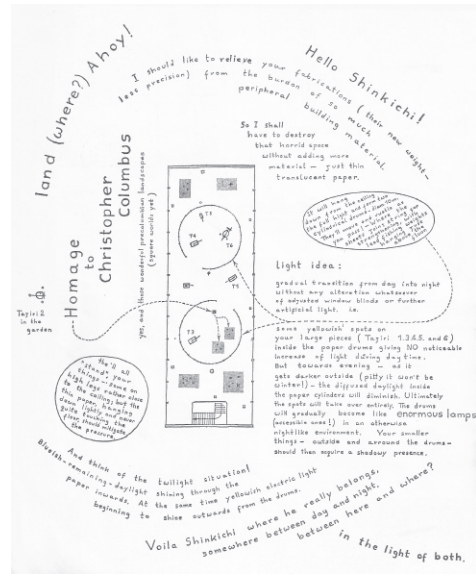 land (where?) Ahoy!
Hello Shinkichi!
I should like to relieve your fabrications (their new weight-
less precision) from the burden of so much
peripheral building material.
So I shall
have to destroy
that horrid space
without adding more
material - just thin
translucent paper.
Homage
to
Christopher
Columbus
yes, and those wonderful precolumbian landscapes
(square worlds yet)
It will hang
down from the ceiling
T1
T4
T6
T5
T3
Tajiri 2
in the
garden
light idea:
gradual transition from day into night
without any alteration whatsoever
of adjusted window blinds or further
artificial light. i.e.
some yellowish spots on
your large pieces (Tajiri 1.3.4.5. and 6)
inside the paper drums giving NO noticeable
increase of light during day time.
But towards evening - as it
gets darker outside (pitty it won't be
winter!) - the diffused daylight inside
the paper cylinders will diminish. Ultimately
the spots will take over entirely. The drums
will gradually become like enormous lamps
(accessible ones!) in an otherwise
nightlike environment. Your smaller
things - outside and arround the drums -
should then acquire a shadowy presence.
the'll all
"stand" your
things - some on
high legs rather close
to the ceiling; but the
thin paper, hanging
down lightly and never
quite touching the
floor, should mitigate
the pressure.
And think of the twilight situation!
Blueish-remaining-daylight shining through the
paper inwards. At the same time yellowish electric light
beginning to shine outwards from the drums.
Voila Shinkichi where he really belongs,
somewhere between day and night,
between here and where?
in the light of both.